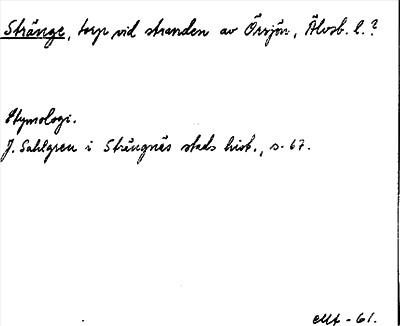 Stränge, torp vid stranden av Örsjön, Älvsb. l.?
Etymologi.
J. Sahlgren i Strängnäs stads hist., s. 67.
-61.